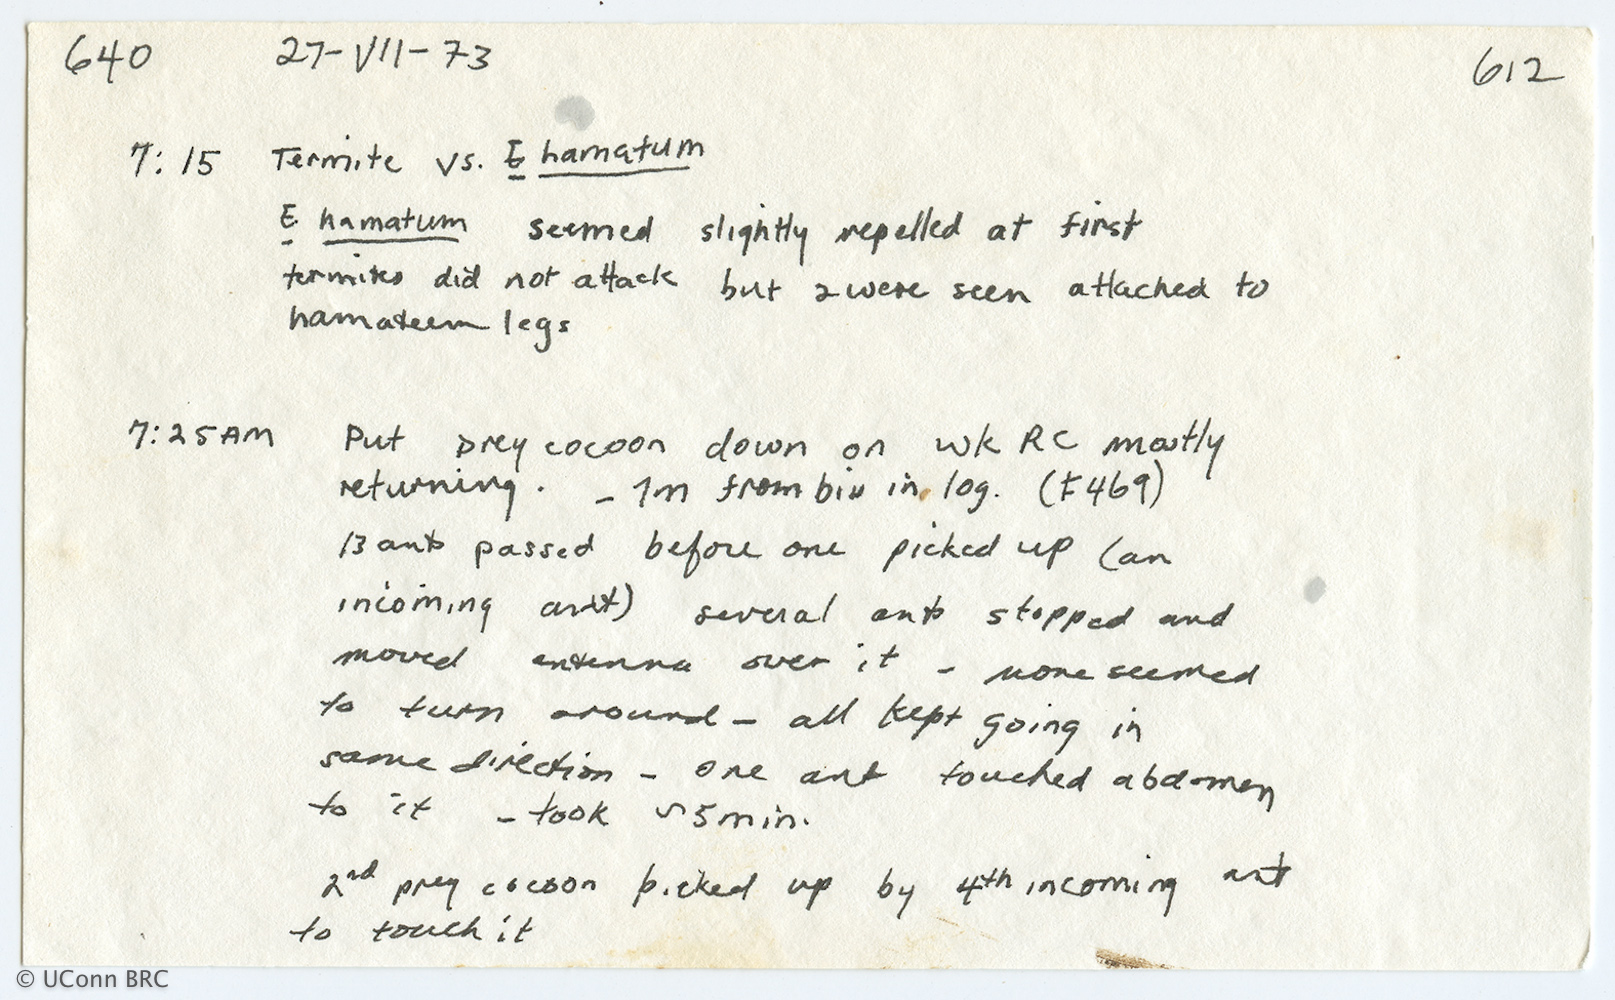 640 27-VII-73 612
7:15 Termite vs. E hamatum
E hamatum seemed slightly repelled at first
termites did not attack but 2 were seen attached to
hamatum legs
7:25 AM Put prey cocoon down on wk RC mostly
returning. - 1m from biv in log. (‡469)
13 ants passed before one picked up (an
incoming ant) several ants stopped and
moved antenna over it - none seemed
to turn around - all kept going in
same direction - one ant touched abdomen
to it - took ~5min.
2nd prey cocoon picked up by 4th incoming ant
to touch it
© UConn BRC